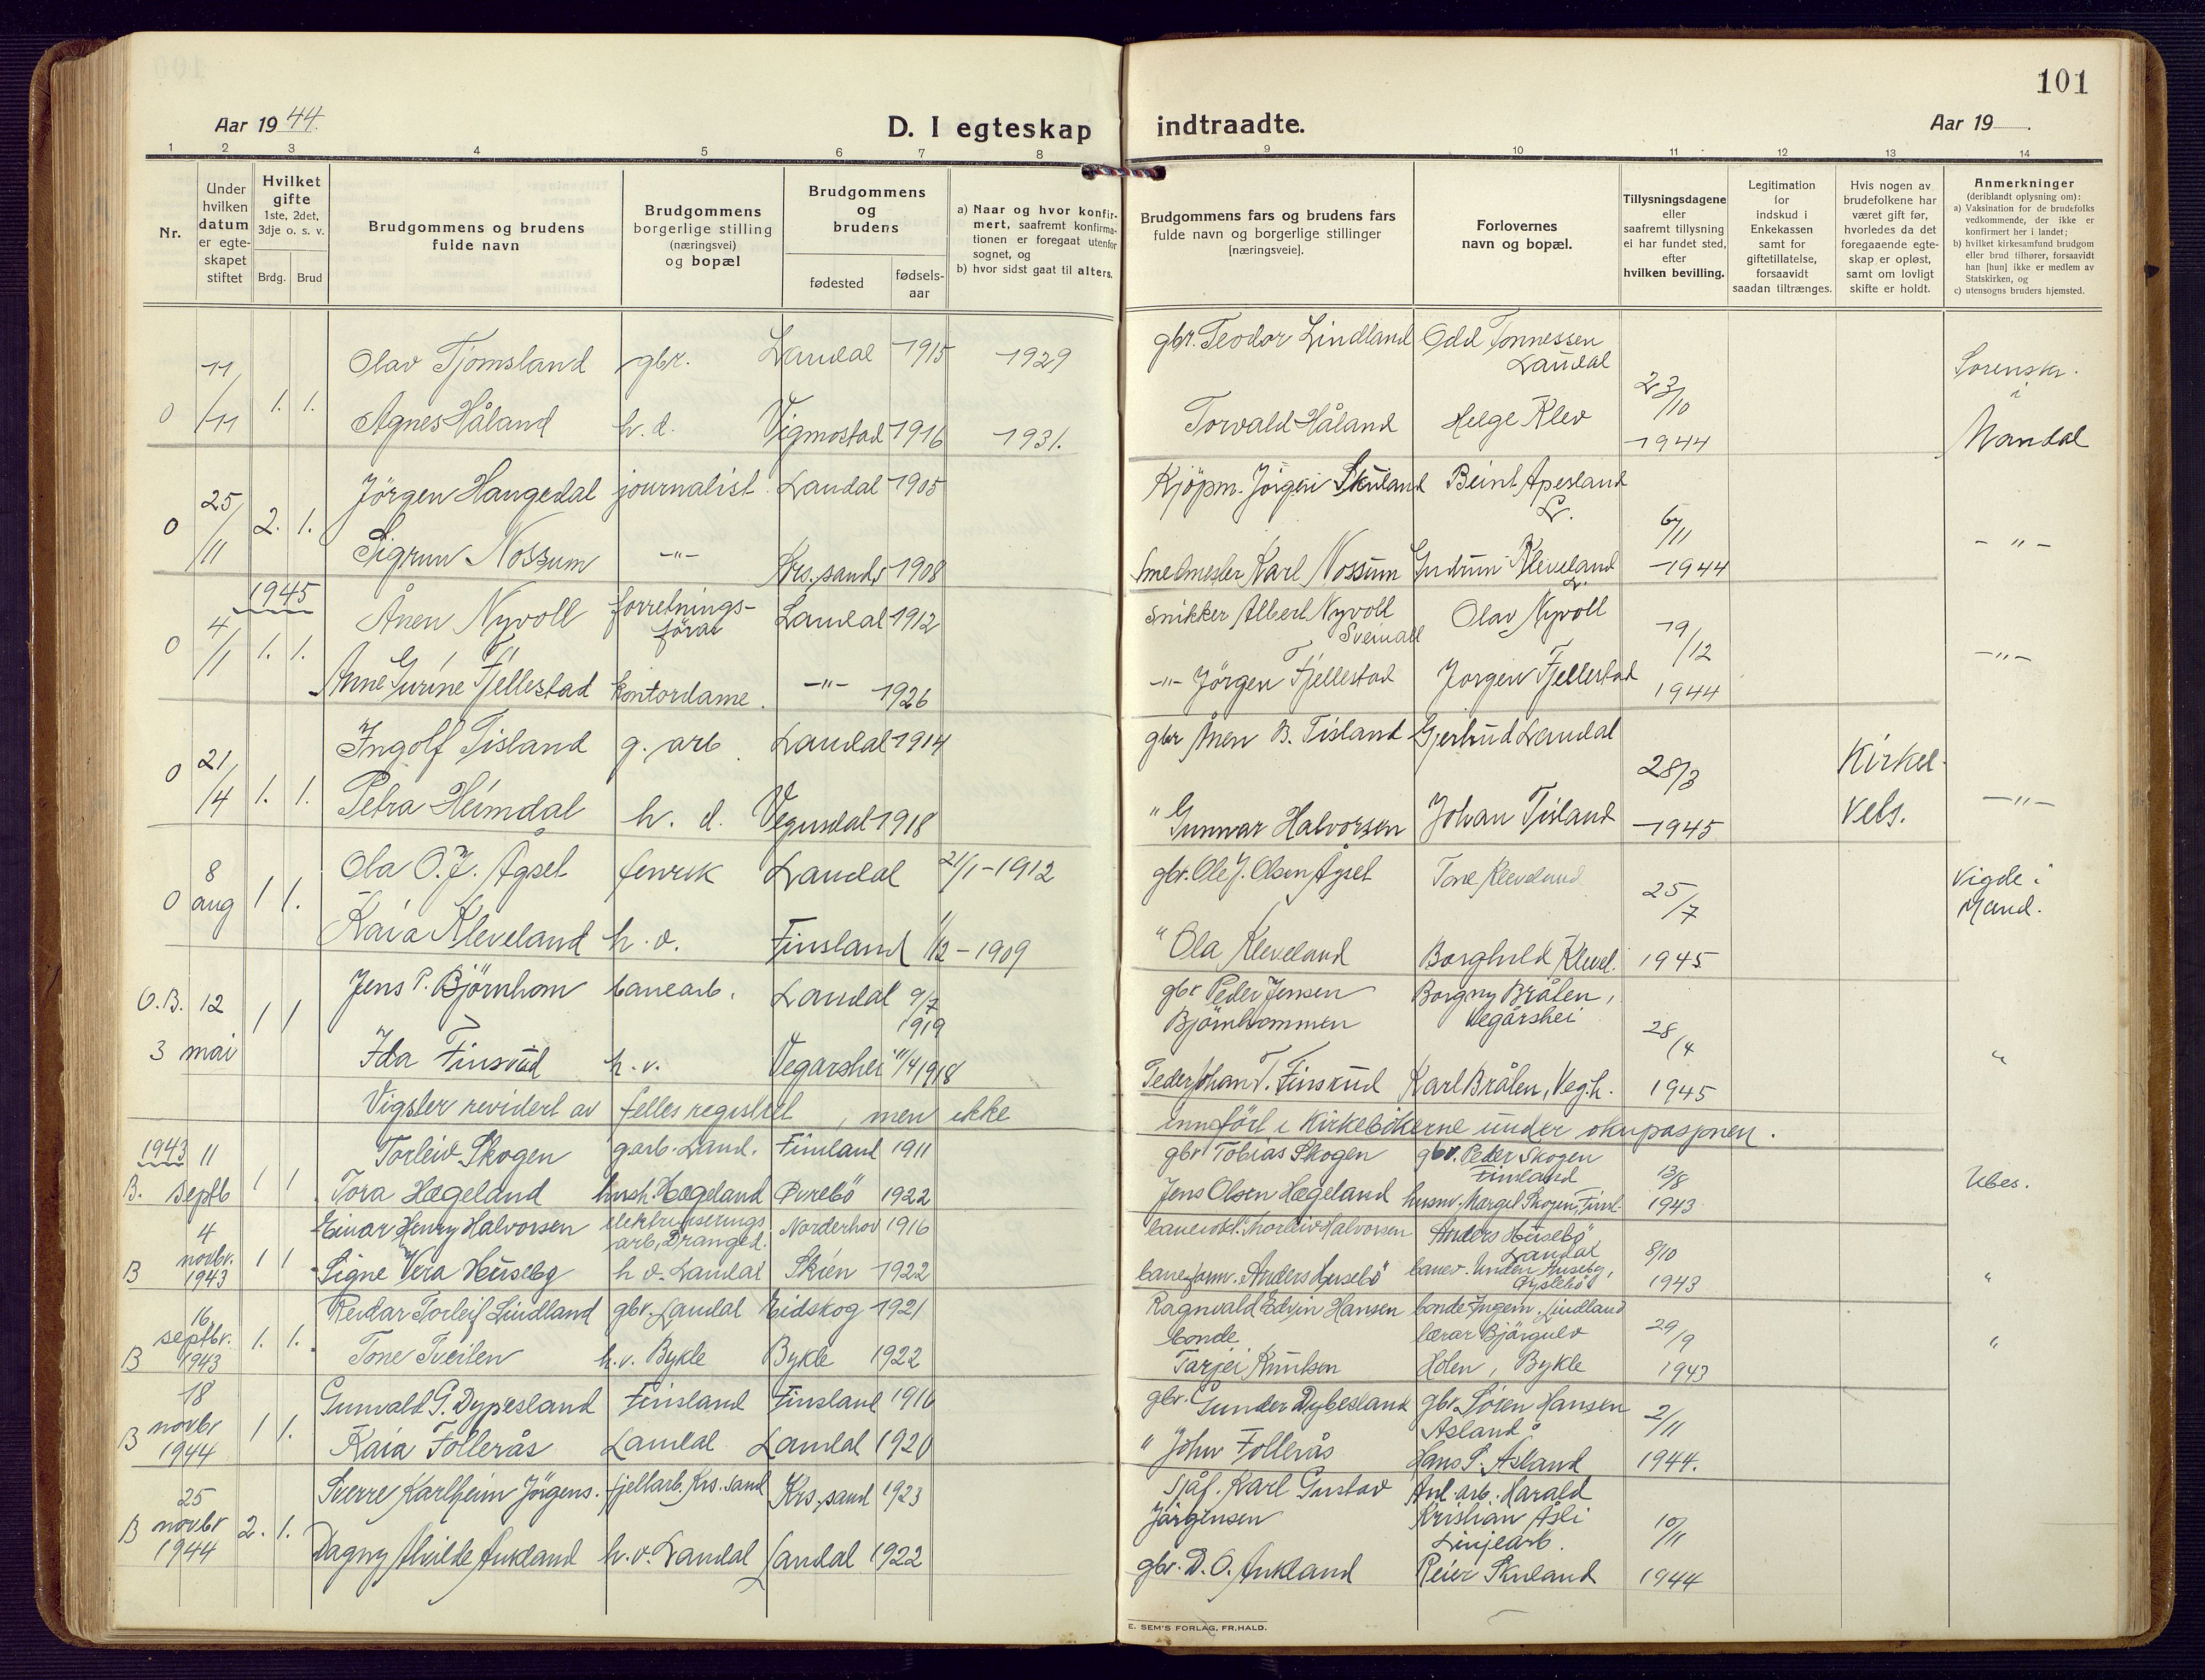 101
Aar 19 44.
D. I egteskap
indtraadte.
Aar 19
1 2 3 4 5 6 7 8 9 10 11 12 13 14
Nr.
Under hvilken datum er egte-skapet stiftet
Hvilket gifte
1ste, 2det, 3dje o. s. v.
Brdg. Brud
Brudgommens og brudens fulde navn
Brudgommens borgerlige stilling (næringsvei) og bopæl
Brudgommens og brudens
fødested
fødsels-aar
a) Naar og hvor konfir-mert, saafremt konfirma-tionen er foregaat utenfor sognet, og
b) hvor sidst gaat til alters.
Brudgommens fars og brudens fars fulde navn og borgerlige stillinger [næringsveie].
Forlovernes navn og bopæl.
Tillysningsdagene eller saafremt tillysning ei har fundet sted, efter hvilken bevilling.
Legitimation for indskud i Enkekassen samt for giftetillatelse, forsaavidt saadan tiltrænges.
Hvis nogen av brudefolkene har været gift før, hvorledes da det foregaaende egte-skap er opløst, samt om lovligt skifte er holdt.
Anmerkninger
(deriblandt oplysning om):
a) Vaksination for de brudefolks vedkommende, der ikke er konfirmert her i landet;
b) hvilket kirkesamfund brudgom eller brud tilhører, forsaavidt han [hun] ikke er medlem av Statskirken, og
c) utensogns bruders hjemsted.
0 11/11 1. 1. Olav Tjomsland gbr. Laudal 1915 1929 gbr. Teodor Lindland Odd Tonnessen Laudal 23/10 1944 Sorenskr. i Mandal
Agnes Håland h. d. Vigmostad 1916 1931. Torvald Håland Helge Klev
0 25/11 2. 1. Jörgen Haugedal journalist. Laudal 1905 Kjöpm. Jörgen Skuland Beint Apesland L. 6/11 1944 - " -
Sigrun Nossum - " - Krs.sand 1908 Smedmester Karl Nossum Gudrun Kleveland L.
1945
0 4/1 1. 1. Ånen Nyvoll forretnings-förar Laudal 1912 Snikker Albert Nyvoll Sveinall Olav Nyvoll 19/12 1944 - " -
Anne Gurine Fjellestad kontordame. - " - 1926 - " - Jörgen Fjellestad Jorgen Fjellestad
0 21/4 1. 1. Ingolf Tisland g. arb. Laudal 1914 gbr Ånen B. Tisland Gjertrud Laudal 28/3 1945 Kirkel. vels. - " -
Petra Heimdal h. d. Vegusdal 1918 " Gunnar Halvorsen Johan Tisland
0 8 aug 1 1. Ola O.J. Ågset fenrik Laudal 21/1-1912 gbr. Ole J. Olsen Ågset Tone Kleveland 25/7 1945 Vigde i Mand.
Kaia Kleveland h. d. Finsland 1/12-1909 " Ola Kleveland Borghild Klevel.
O.B. 3 12 mai 1 1 Jens P. Björnhom banearb. Laudal 9/7 1919 gbr Peder Jensen Björnhommen Borgny Brålen, Vegårshei 28/4 1945 "
Ida Finsrud h. v. Vegarshei 11/4 1918 Peder Johan T. Finsrud Karl Brålen, Veg.h.
Vigsler revidert av felles registret, men ikke innfört i Kirkebökerne under okupasjonen.
1943
B. 11 septb 1 1 Torleiv Skogen g.arb. Laud. Finsland 1911 gbr Tobias Skogen gbr. Peder Skogen Finsland 13/8 1943 Ubes.
Tora Hægeland hush. Hægeland Øvrebö 1922 Jens Olsen Hægeland husm. Margit Skogen, Finsl.
B 4 novbr. 1943 1 1 Einar Henry Halvorsen elektrifiserings arb, Dranged. Norderhov 1916 Thorleiv Halvorsen Anders Husebö Laudal 8/10 1943 "
Signe Vera Huseby h d. Laudal Skien 1922 baneform. Anders Husebö banev. Huseby, Öyslebö
B 16 septbr. 1943 1. 1. Reidar Torleif Lindland gbr. Laudal Eidskog 1921 Ragnvald Edvin Hansen bonde Ingem. Lindland 29/9 1943 "
Tone Tveiten h.v. Bykle Bykle 1922 bonde Tarjei Knutsen lærar Björgulv Holen, Bykle
B 18 novbr 1944 1 1. Gunvald G. Dypesland Finsland Finsland 1916 gbr. Gunder Dybesland gbr. Sören Hansen Åsland 2/11 1944.
Kaia Follerås Laudal Laudal 1920 " John Follerås Hans S. Åsland
B 25 novbr 1944 2. 1. Sverre Karlheim Jörgens. fjellarb. Krs.sand Krs.sand 1923 Sjåf. Karl Gustav Jörgensen Anl. arb. Harald Kristian Åsli Linjearb. 10/11 1944
Dagny Alvilde Aukland h.v. Laudal Laudal 1922 gbr. D.O. Aukland Reier Skuland
E. SEM'S FORLAG, FR.HALD.